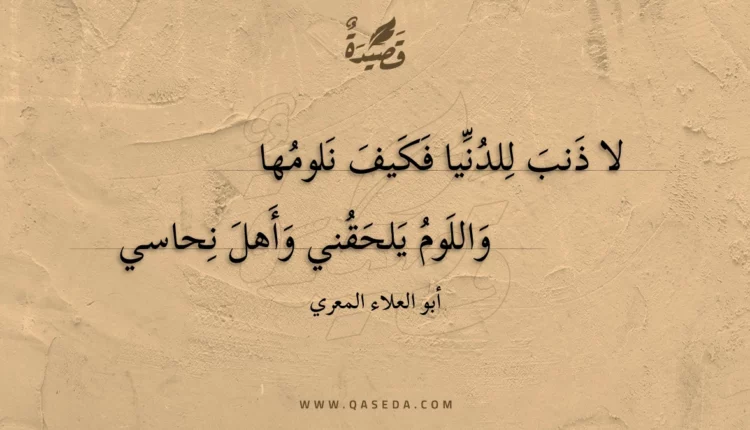 قَصِيدَةٌ
لا ذَنبَ لِلدُنِّيا فَكَيفَ نَلومُها
وَاللَومُ يَلحَقُني وَأَهلَ نِحاسي
أبو العلاء المعري
WWW.QASEDA.COM